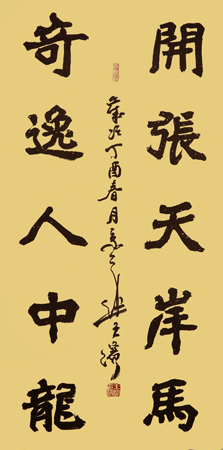 開張天岸馬
奇逸人中龍
歲次丁酉春月